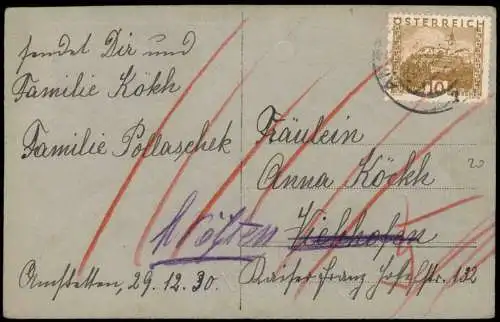 sendet Dir und
Familie Kökh
Familie Pollaschek
Amstetten, 29.12.30.
ÖSTERREICH
10
Fräulein
Anna Köckh
Viehhofen
Kaiser Franz Josefstr. 132
20